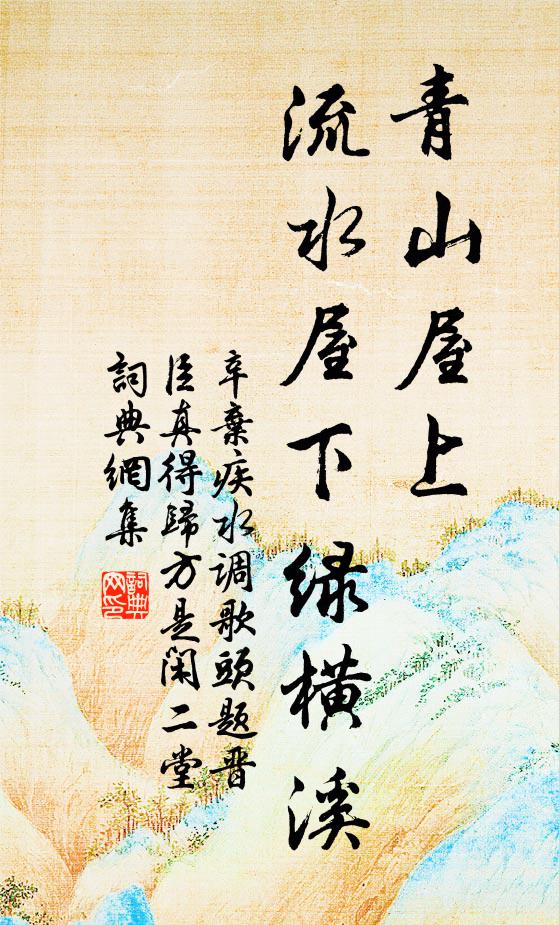 青山屋上
流水屋下緑橫溪
辛棄疾水调歌頭题晋
臣真得歸方是闲二堂
詞典網集
詞典
网印